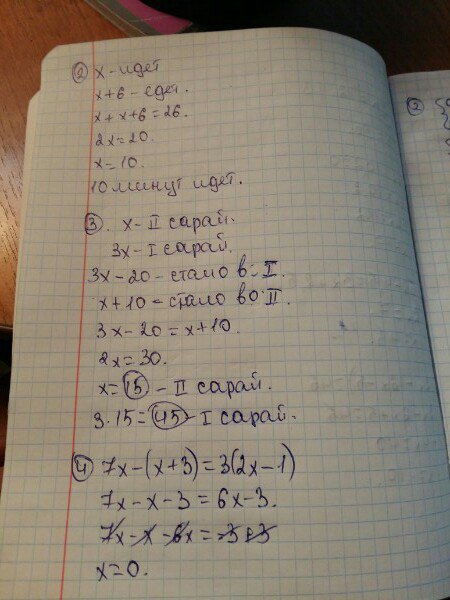 ② x - идет
x+6 - едет.
x+x+6=26.
2x=20.
x=10.
10 минут идет.
③. x - II сарай.
3x - I сарай.
3x-20 - стало в I.
x+10 - стало во II.
3x-20=x+10.
2x=30.
x=15 - II сарай.
3·15=45 - I сарай.
④ 7x-(x+3)=3(2x-1)
7x-x-3=6x-3.
7x-x-6x=-3+3
x=0.
②